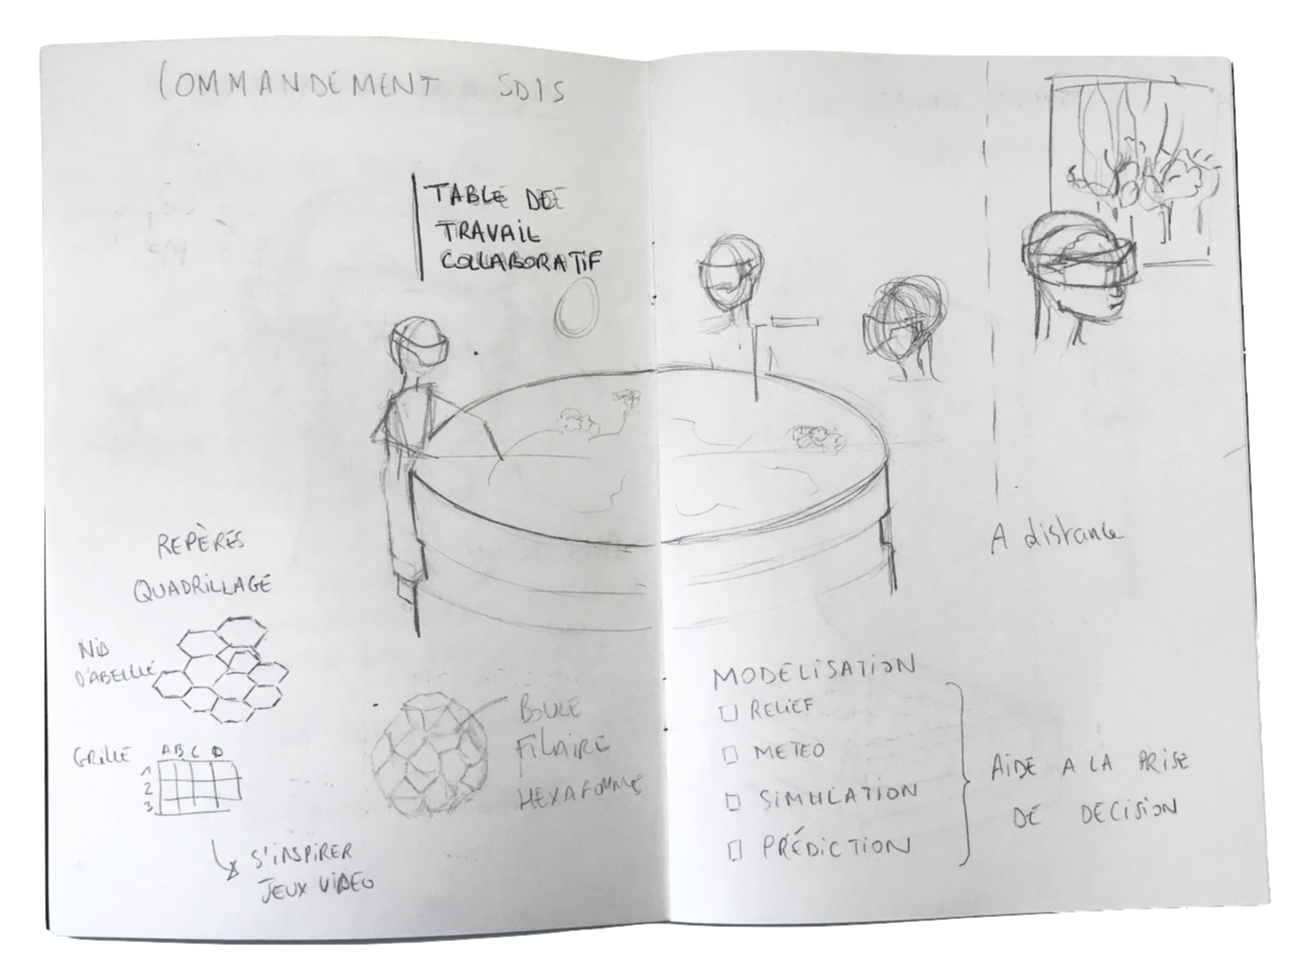 COMMANDEMENT SDIS
TABLE DE
TRAVAIL
COLLABORATIF
REPÈRES
QUADRILLAGE
NID
D'ABEILLE
GRILLE
A B C D
1
2
3
S'INSPIRER
JEUX VIDEO
BOULE
FILAIRE
A distance
MODELISATION
RELIEF
METEO
SIMULATION
PRÉDICTION
AIDE A LA PRISE
DE DECISION